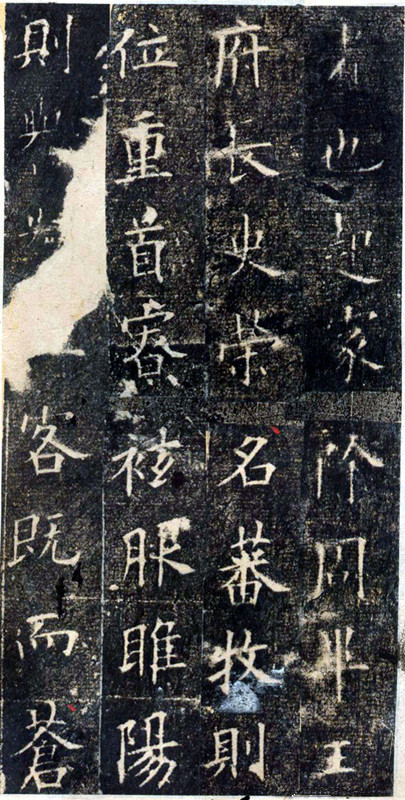 者也起家除周畢王
府長史榮名蕃牧則
位重首寮袨服睢陽
則客既而蒼